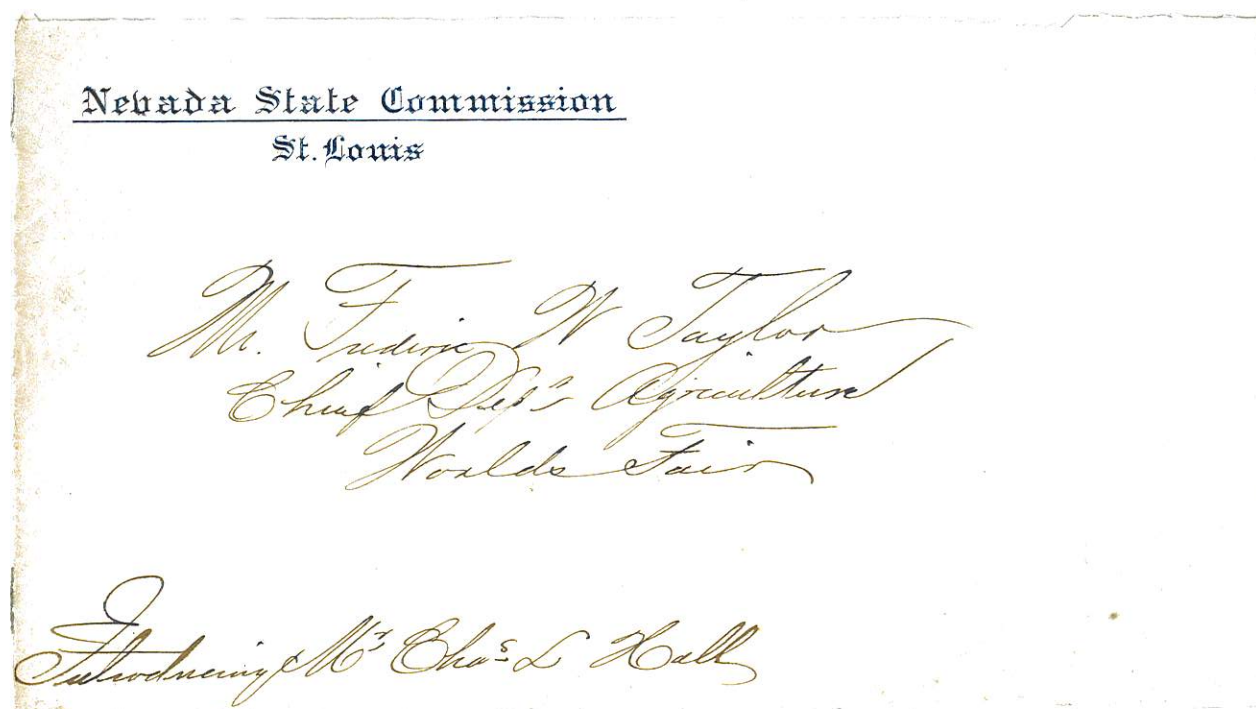 Nevada State Commission
St. Louis
Mr. Frederic W Taylor
Chief Dep't Agriculture
Worlds Fair
Introducing Mr Chas L Hall